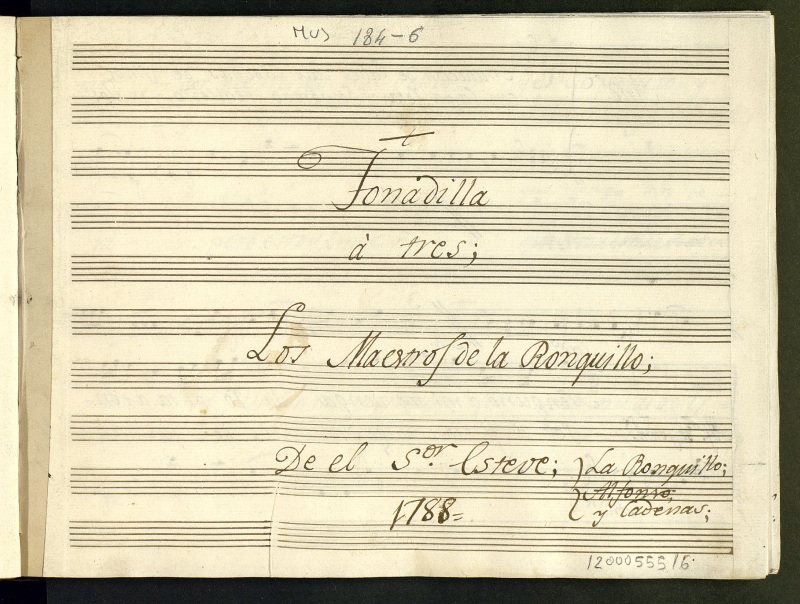 Mus 184-6
Tonadilla
à tres;
Los Maestros de la Ronquillo;
De el S.or Esteve;
1788=
La Ronquillo;
Alfonso;
y Cadenas;
1200055516